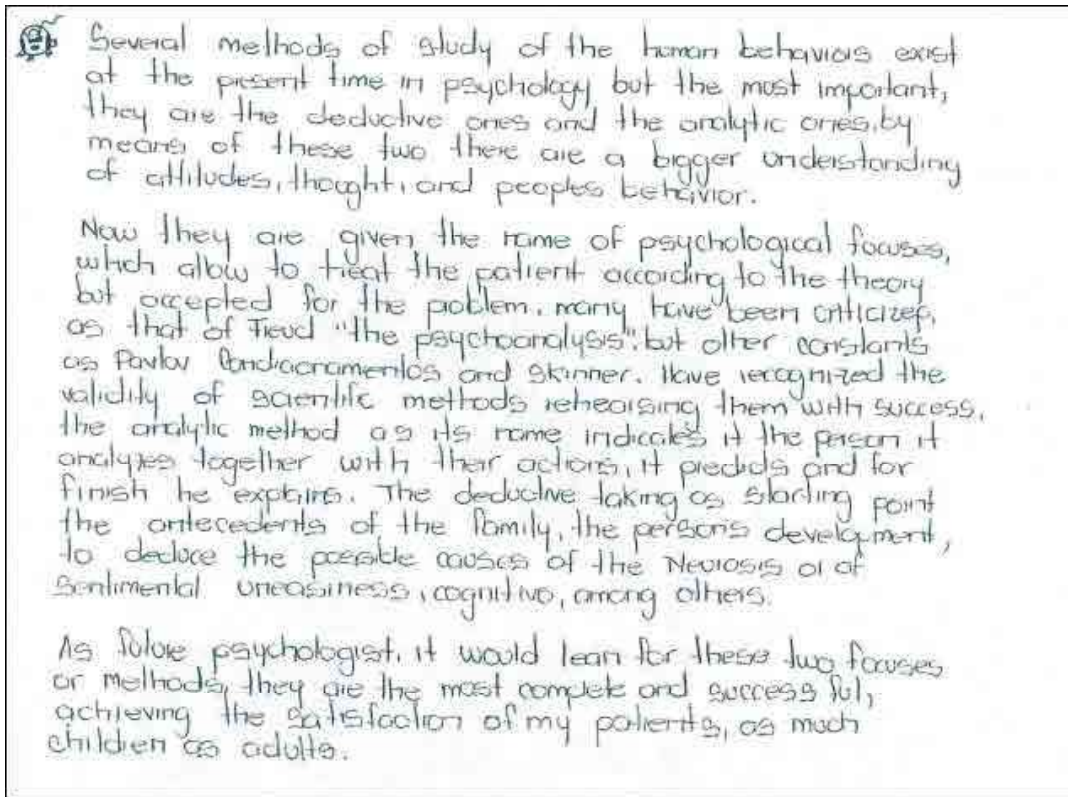 Several methods of study of the human behaviors exist
at the present time in psychology but the most important,
they are the deductive ones and the analytic ones, by
means of these two there are a bigger understanding
of attitudes, thought, and peoples behavior.
Now they are given the name of psychological focuses,
which allow to treat the patient according to the theory
but accepted for the problem, many have been criticizep,
as that of Freud "the psychoanalysis", but other constants
as Pavlov Condiacramentos and Skinner. Have recognized the
validity of scientific methods rehearsing them with success,
the analytic method as its name indicates it the person it
analyzes together with their actions, it predicts and for
finish he explains. The deductive taking as starting point
the antecedents of the family, the persons development,
to deduce the possible causes of the Neurosis or of
Sentimental uneasiness, cognitivo, among others.
As future psychologist, it would lean for these two focuses
or methods, they are the most complete and success ful,
achieving the satisfaction of my patients, as much
children as adults.